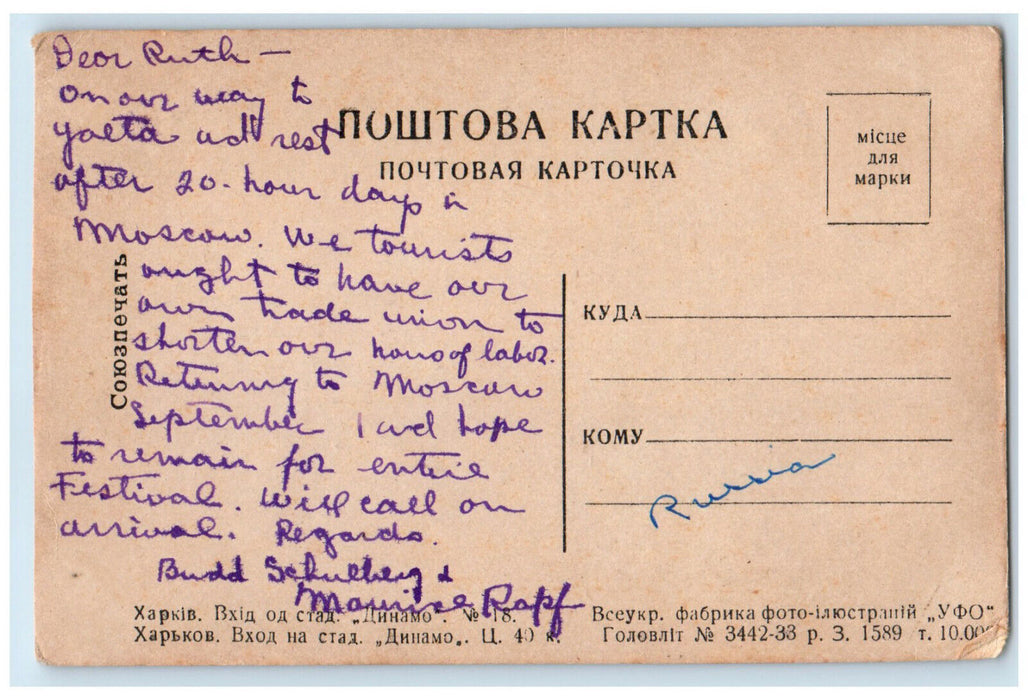 Dear Ruth —
On our way to
Yalta and rest
after 20-hour days in
Moscow. We tourists
ought to have our
own trade union to
shorten our hours of labor.
Returning to Moscow
September 1 and hope
to remain for entire
Festival. Will call on
arrival. Regards.
Budd Schulberg &
Maurice Rapf
ПОШТОВА КАРТКА
ПОЧТОВАЯ КАРТОЧКА
місце
для
марки
Союзпечать
КУДА
КОМУ
Russia
Харків. Вхід од стад. „Динамо". № 18.
Харьков. Вход на стад. „Динамо„. Ц. 40 к.
Всеукр. фабрика фото-ілюстрацій „УФО"
Головліт № 3442-33 р. З. 1589 т. 10.000